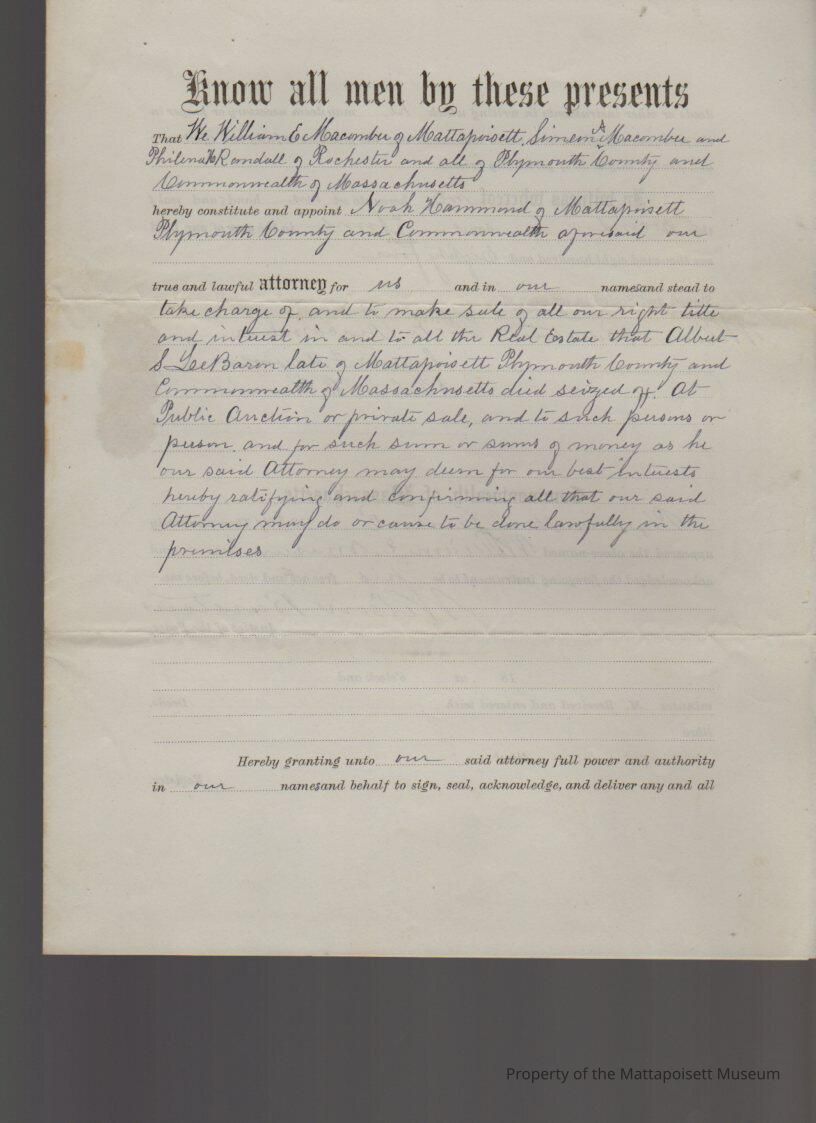 Know all men by these presents
That We William E Macomber of Mattapoisett, Simeon A Macomber and
Philena H Randall of Rochester and all of Plymouth County and
Commonwealth of Massachusetts
hereby constitute and appoint Noah Hammond of Mattapoisett
Plymouth County and Commonwealth aforesaid our
true and lawful attorney for us and in our names and stead to
take charge of, and to make sale of all our right title
and interest in and to all the Real Estate that Albert
S LeBaron late of Mattapoisett Plymouth County and
Commonwealth of Massachusetts died seized of. At
Public Auction or private sale, and to such persons or
person, and for such sum or sums of money as he
our said Attorney may deem for our best interests
hereby ratifying and confirming all that our said
Attorney may do or cause to be done lawfully in the
premises
Hereby granting unto our said attorney full power and authority
in our names and behalf to sign, seal, acknowledge, and deliver any and all
Property of the Mattapoisett Museum